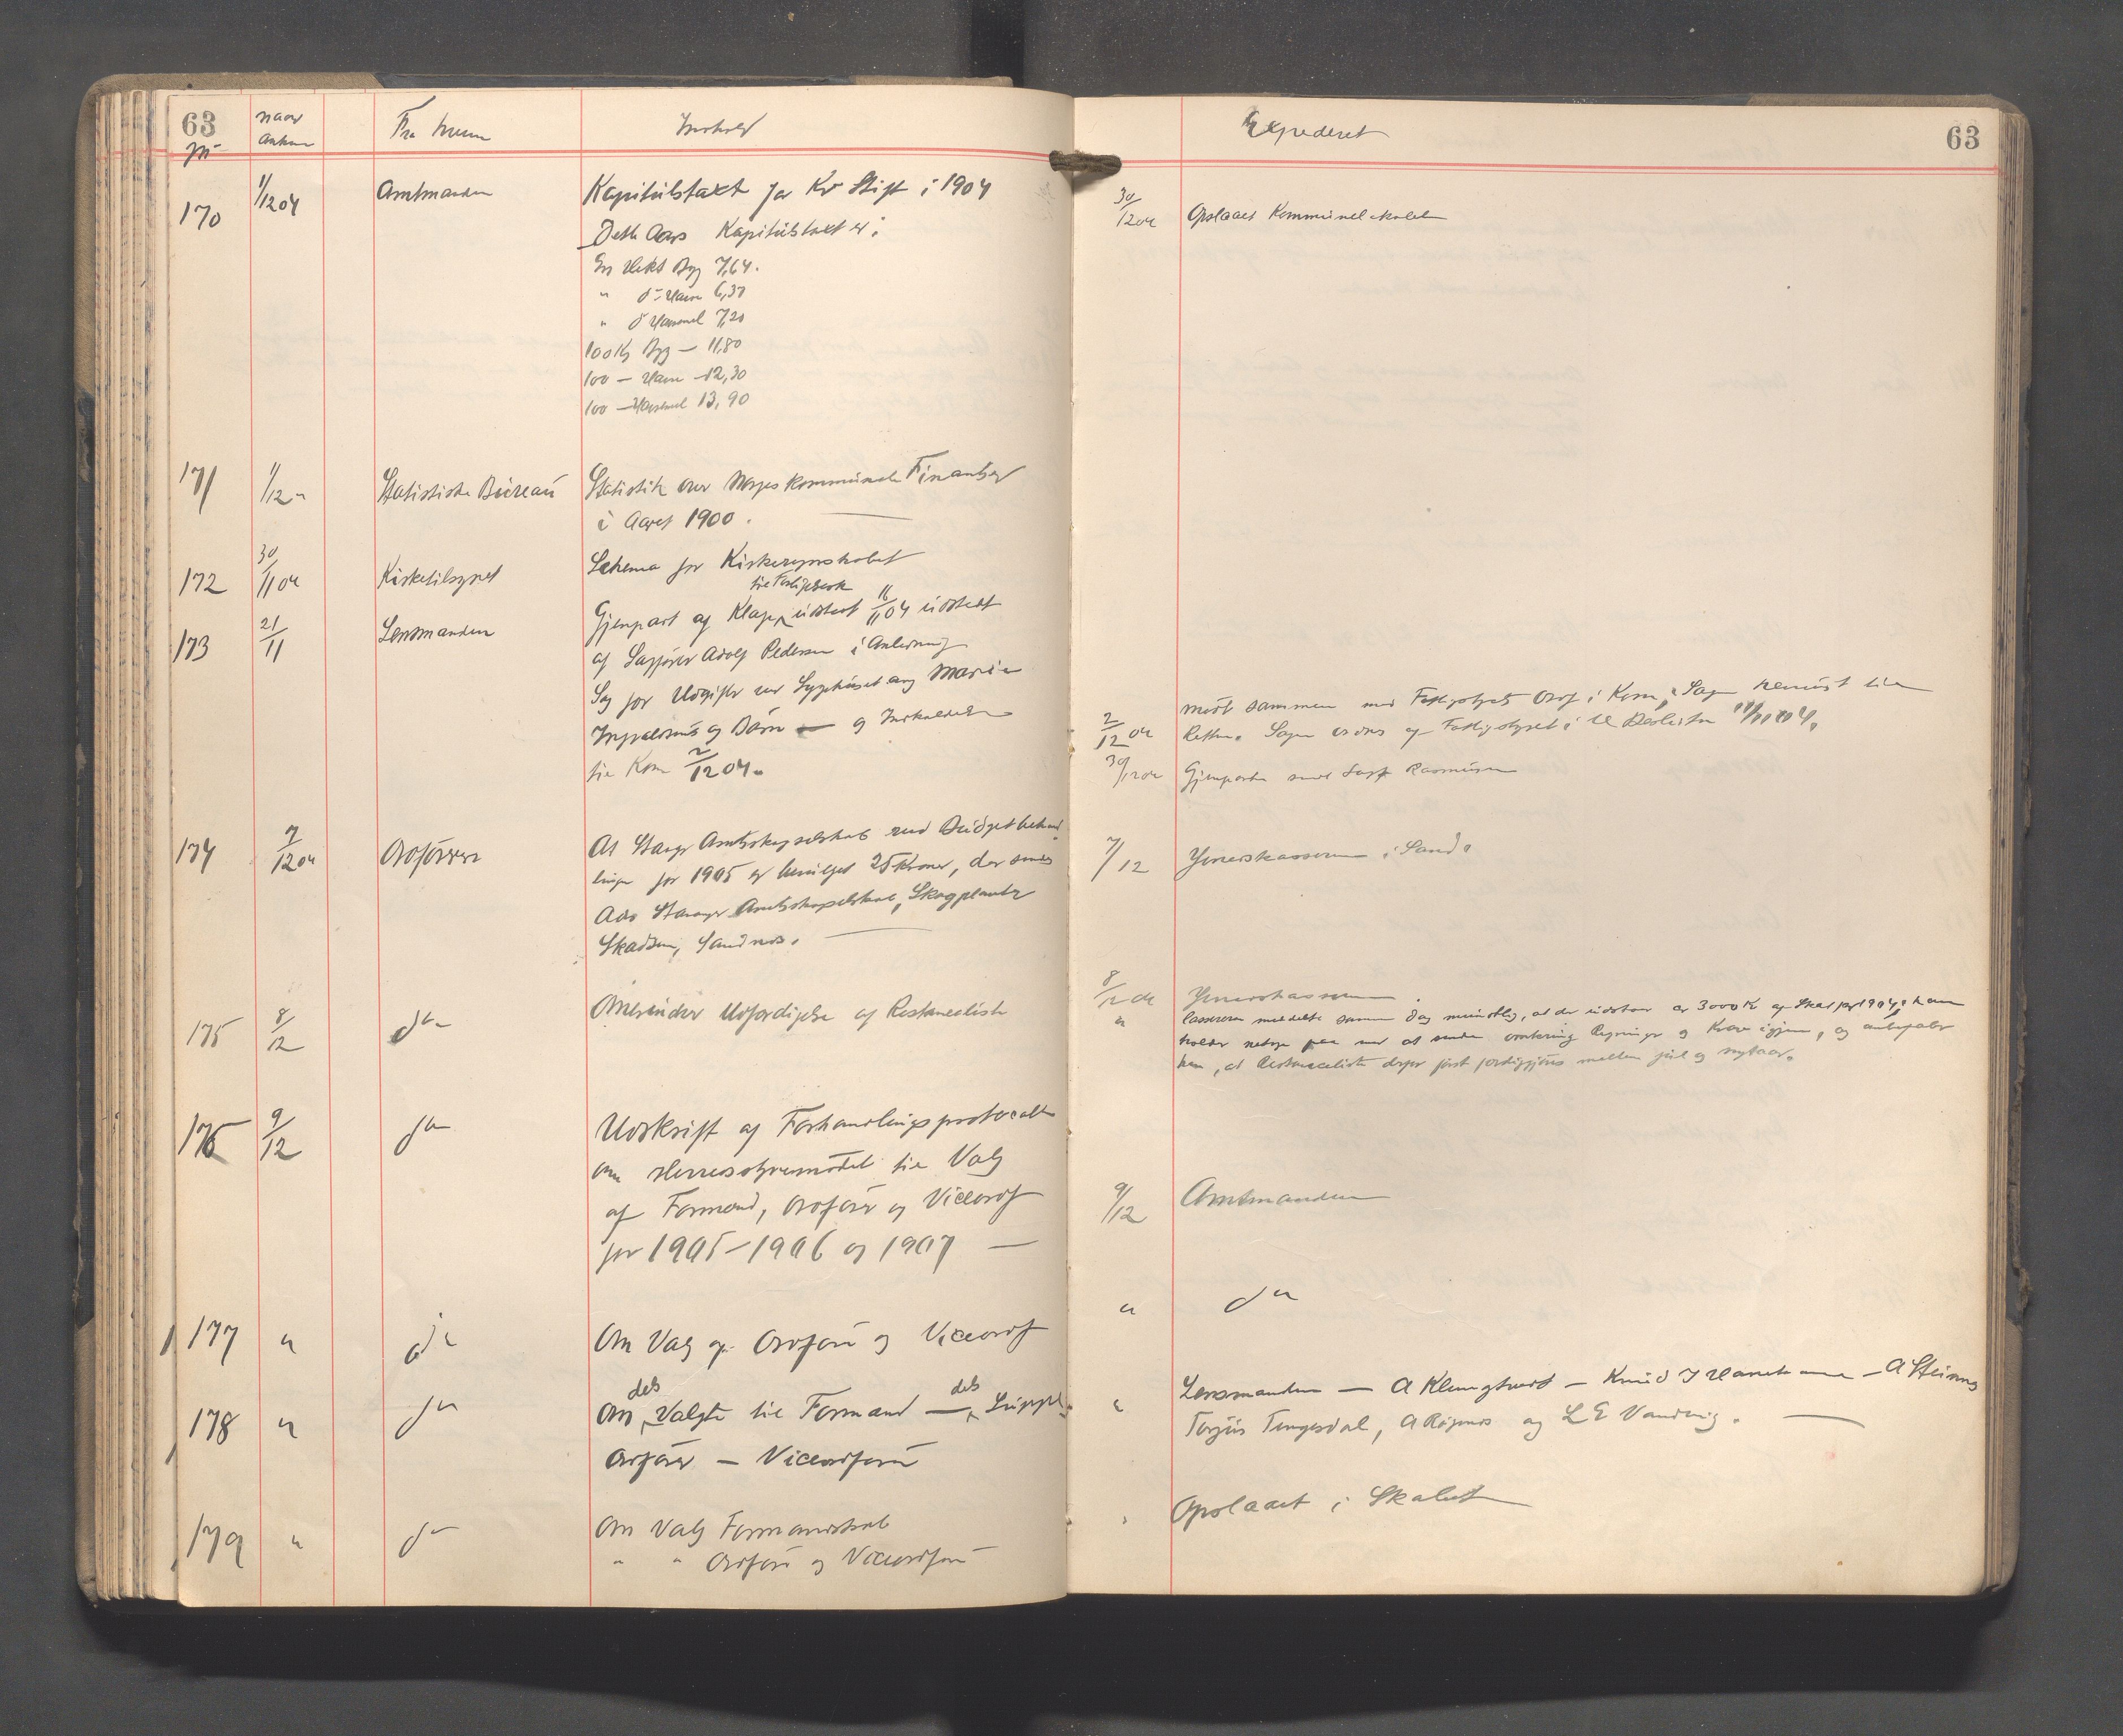 63
Nr
naar
ankom
Fra hvem
Indhold
170
1/12 04
Amtmanden
Kapitelstaxt for Kr Stift i 1904
Dette Aars Kapitelstaxt er:
En Hekt Byg 7,64.
" do Havre 6,37
" do Havremel 7,20
100 Kg Byg — 11,80
100 — Havre — 12,30
100 — Havremel 13,90
171
1/12 "
Statistiske Bureau
Statistik over Norges kommunale Finantser
i Aaret 1900.
172
30/11 04
Kirketilsynet
Schema for Kirkesynsskabet
173
21/11
Lensmanden
til Forligelsesk
Gjenpart af Klage udstedt 16/11 04 udstedt
af Sagfører Adolf Pedersen i Anledning
Sag for Udgifter ved Sygehuset ang Marie
og Børn — og Indkaldelse
til Kom 2/12 04.
174
7/12 04
Ordføreren
At Stavgr Amtsskogselskab ved Budgetbehand
lingen for 1905 er bevilget 25 Kroner, der sendes
Adr Stavanger Amtsskogselskab, Skogplanter
Skadsem, Sandnes.
175
8/12
do
Anmoder Udfærdigelse af Restanceliste
176
9/12
do
Udskrift af Forhandlingsprotocollen
om Herredsstyremødet til Valg
af Formænd, Ordfører og Viceordf
for 1905 – 1906 og 1907 —
177
"
do
Om Valg af Ordfører og Viceordf
178
"
do
dels dels
Om Valgte til Formænd — Suppl
Ordfører — Viceordfører
179
"
do
Om Valg Formandskab
" " Ordfører og Viceordfører
Expederet
63
30/12 04
Opslaaet Kommunelokalet
2/12 04
mødt sammen med Fattigstyrets Ordf i Kom, Sagen henvist til
Retten. Sagen ordnes af Fattigstyret
30/12 04
Gjenparten sendt Sagf Rasmussen
7/12
Herredskassereren i Sand.
8/12 04
Herredskassereren
"
Kassereren meddelte samme Dag mundtlig, at der udstaar ca 3000 Kr af Skat for 1904, han
holder netop paa med at sende omkring Regninger og Krav igjen, og anbefaler
han, at Restancelisten derfor først færdiggjøres mellem jul og nytaar.
9/12
Amtmanden
"
do
"
Lensmanden — A Klungtvedt — Knud — A Steinnes
Torjus Tengesdal, A og L E Vandvig. —
"
Opslaaet i Skabet